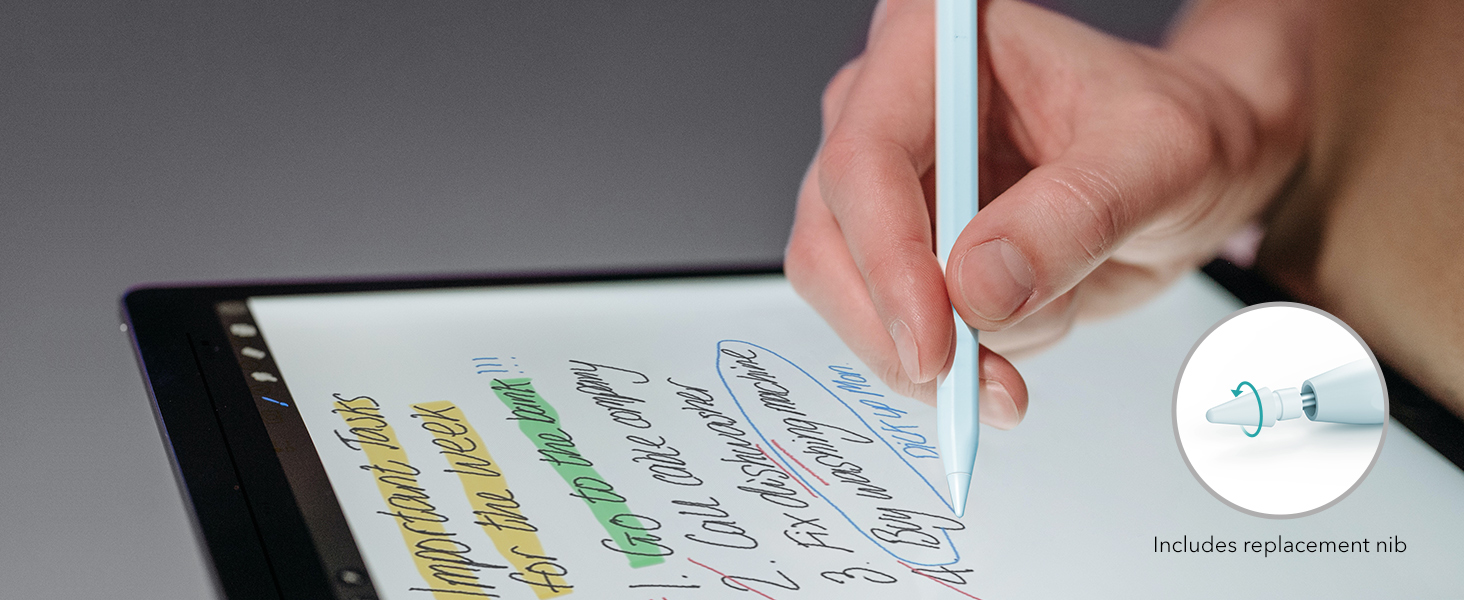 Important Tasks
for the week
1. Go to the bank!!!
2. Call cake company
3. Fix dishwasher
4. Buy washing machine
pick up Mon
Includes replacement nib